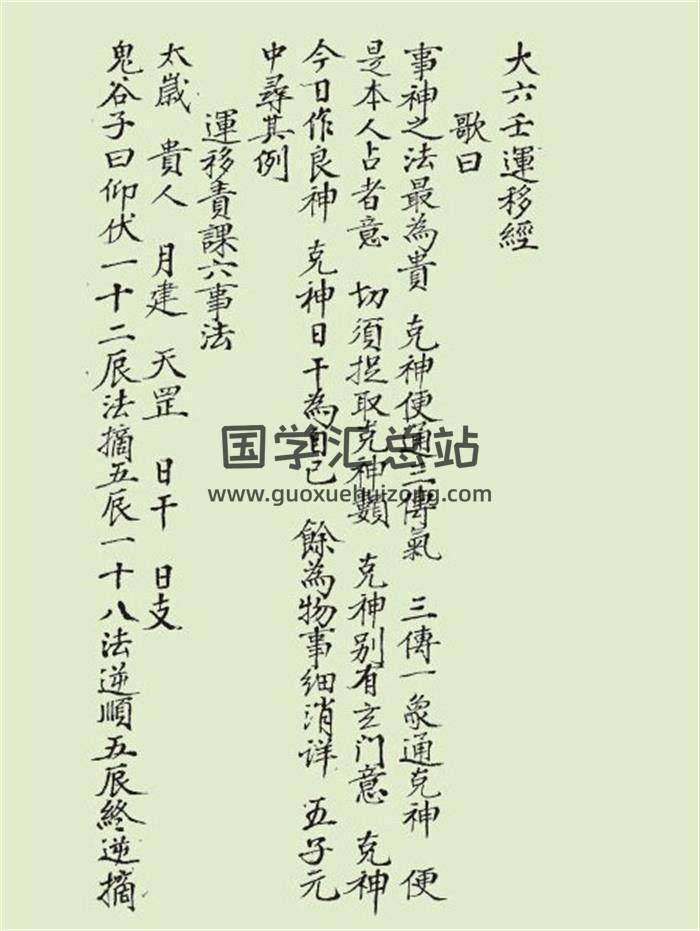 大六壬運移經
歌曰
事神之法最為貴 克神便通三傳氣 三傳一象通克神 便
是本人占者意 切須捉取克神類 克神别有玄门意 克神
今日作良神 克神日干為自己 餘為物事细消详 五子元
中尋其例
運移責課六事法
太歲 貴人 月建 天罡 日干 日支
鬼谷子曰仰伏一十二辰法摘五辰一十八法逆順五辰終逆摘
国学汇总站
www.guoxuehuizong.com